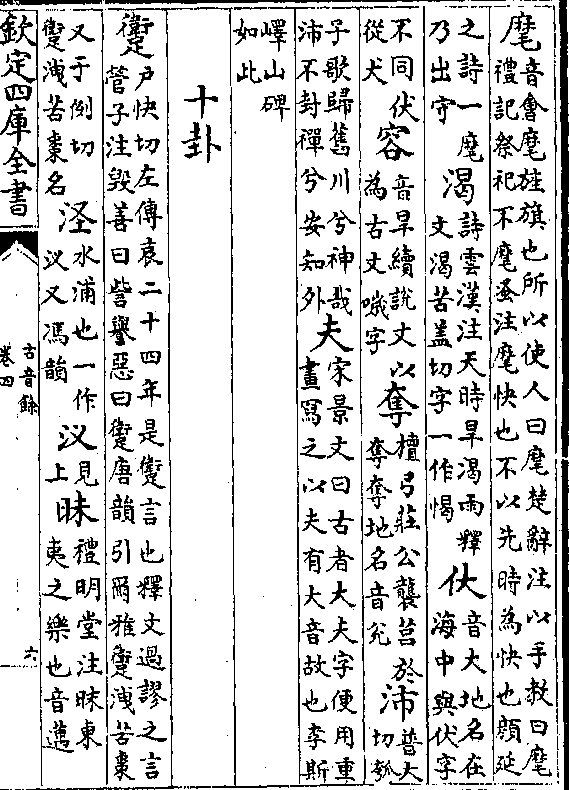 麾音會麾旌旗也所以使人曰麾楚辭注以手教曰麾
禮記祭祀不麾蚤注麾快也不以先時為快也顏延
之詩一麾
乃出守
渴詩雲漢注天時旱渴雨釋
文渴苦盖切字一作愒
㐲音大地名在
海中與伏字
不同伏
從犬
容音旱續說文以
為古文噦字
奪檀弓莊公襲莒於
奪奪地名音兊
沛普大
切瓠
子歌歸舊川兮神哉
沛不封禪兮安知外
夫宋景文曰古者大夫字便用重
畫寫之以夫有大音故也李斯
嶧山碑
如此
十卦
躗戶快切左傳哀二十四年是躗言也釋文過謬之言
管子注毀善曰訾譽惡曰躗唐韻引爾雅躗洩苦棗
又于例切
躗洩苦棗名
水浦也一作
汊又馮韻
汊見
上
昧禮明堂注昧東
夷之樂也音邁
欽定四庫全書
古音餘
卷四
六